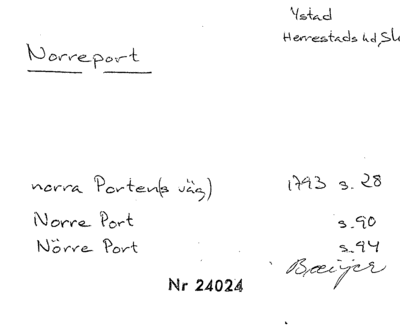 Ystad
Herrestads hd, Sk
Norreport
norra Porten(s väg) 1793 s. 28
Norre Port s. 90
Nörre Port s. 94
Bæijer
Nr 24024